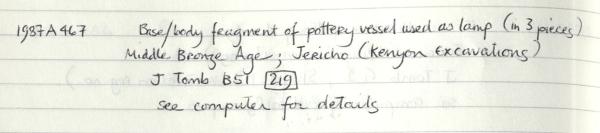 1987A467 Base/body fragment of pottery vessel used as lamp (in 3 pieces)
Middle Bronze Age; Jericho (Kenyon Excavations)
J Tomb B51 219
see computer for details